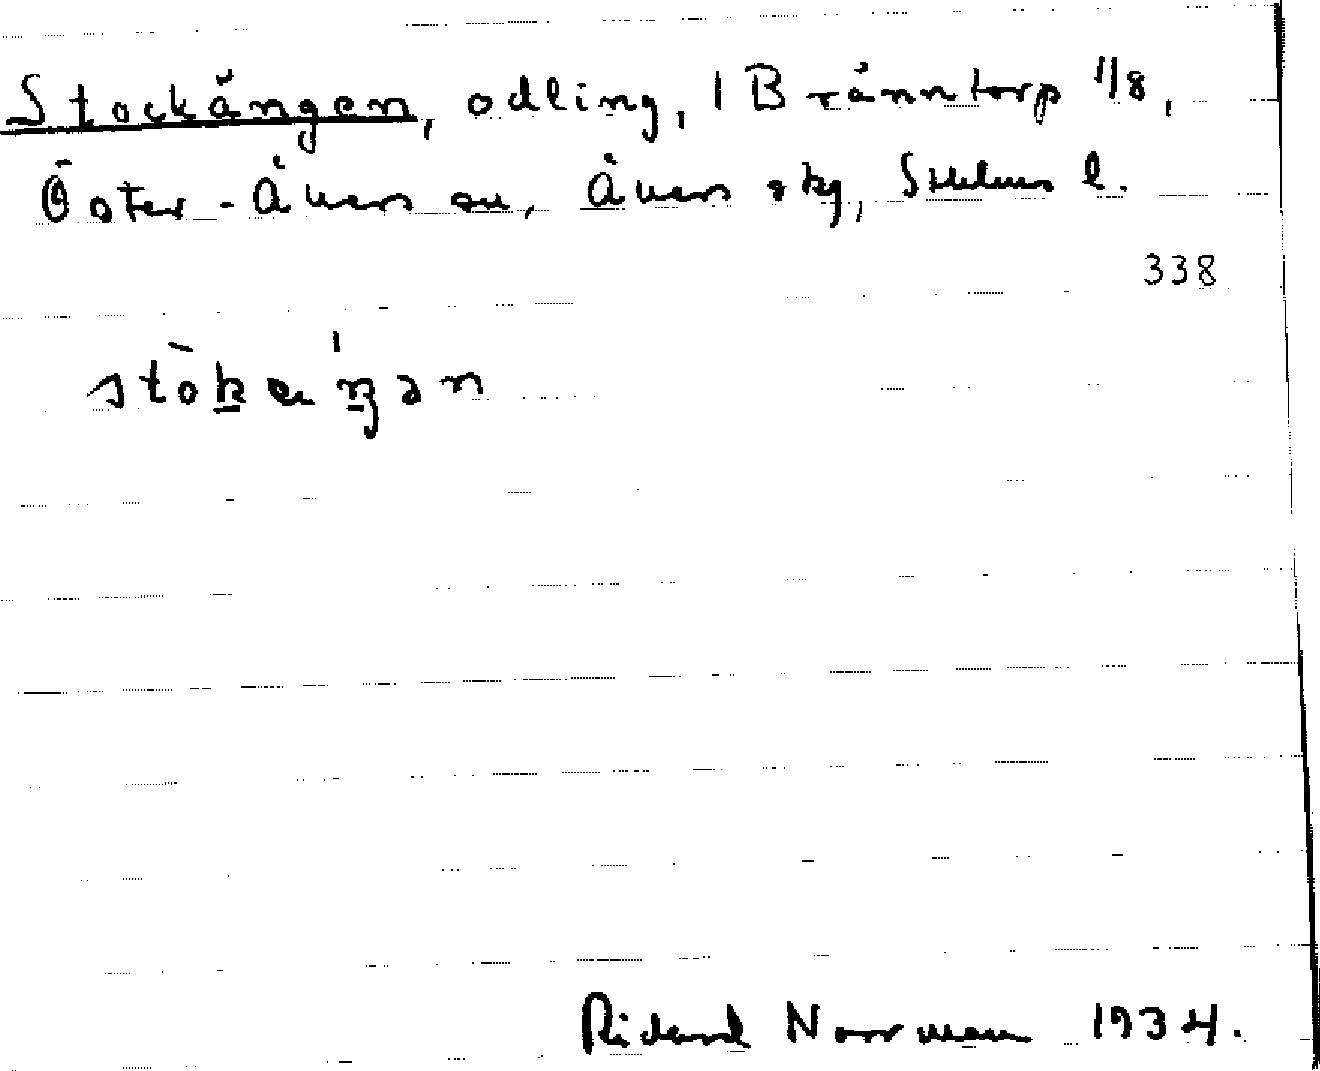 Stockängen, odling, 1 Bränntorp 1/8,
Öster-Åkers sn, Åkers skg, Sthlms l.
338
stòkæŋ́ən
Richard Norrman 1934.